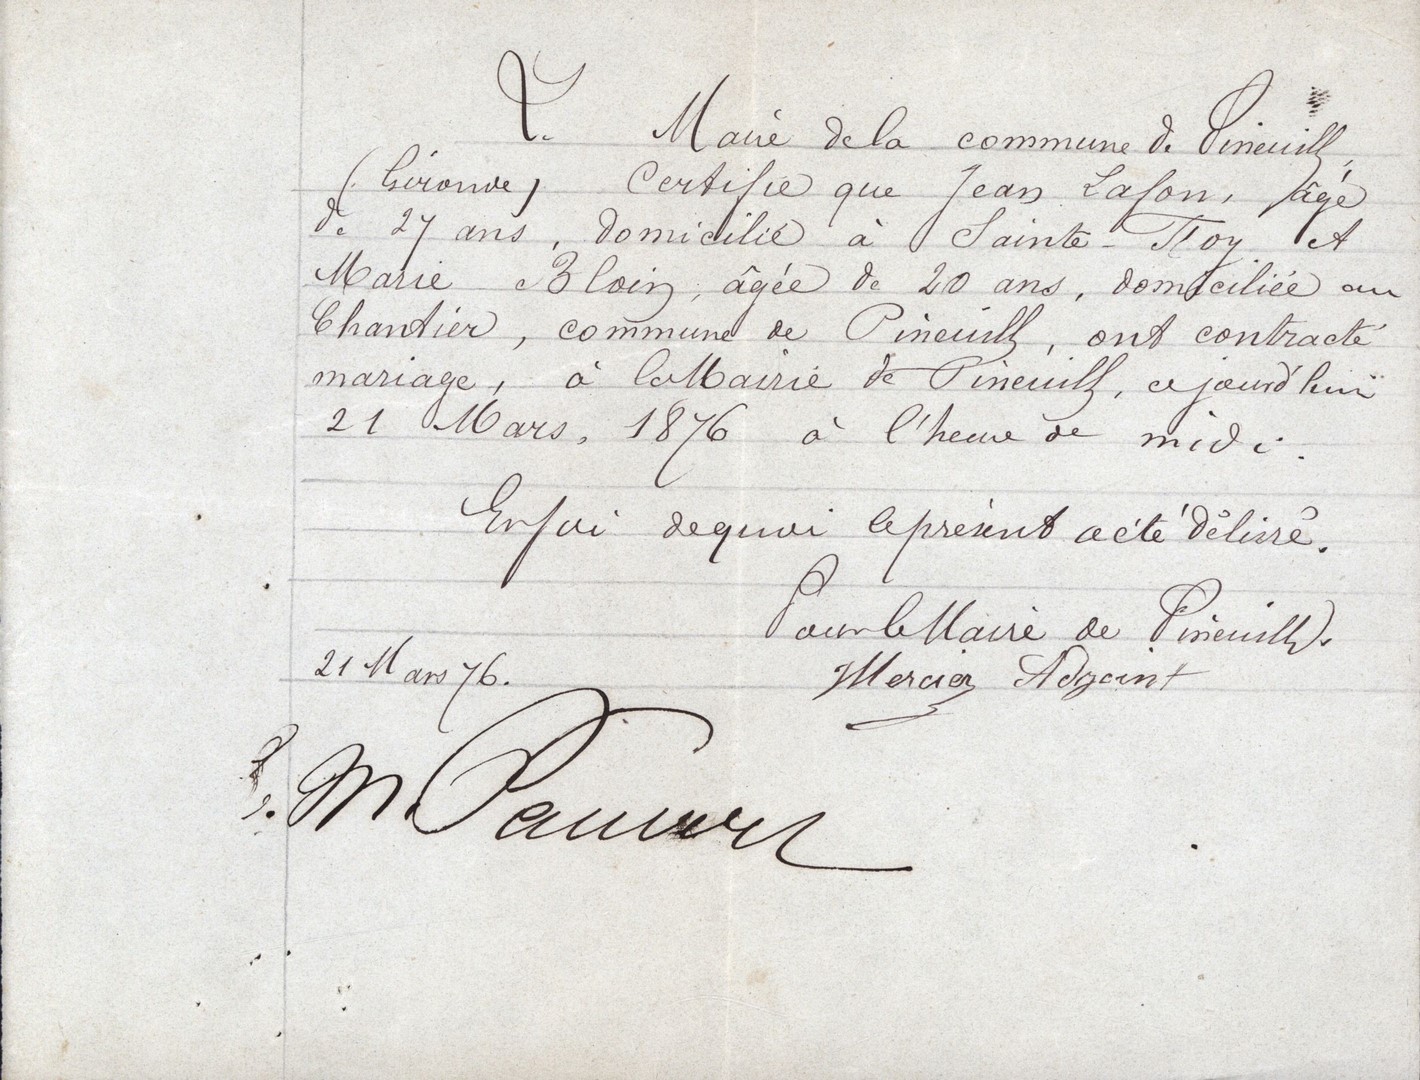 Le Maire de la commune de Pineuilh,
(Gironde) Certifie que Jean Lafon, âgé
de 27 ans, domicilié à Sainte-Foy et
Marie Bloin, âgée de 20 ans, domiciliée au
Chantier, commune de Pineuilh, ont contracté
mariage, à la Mairie de Pineuilh, ce jourd'hui
21 Mars, 1876 à l'heure de midi.
En foi de quoi le présent acte délivré.
Pour le Maire de Pineuilh.
Mercier Adjoint
21 Mars 76.